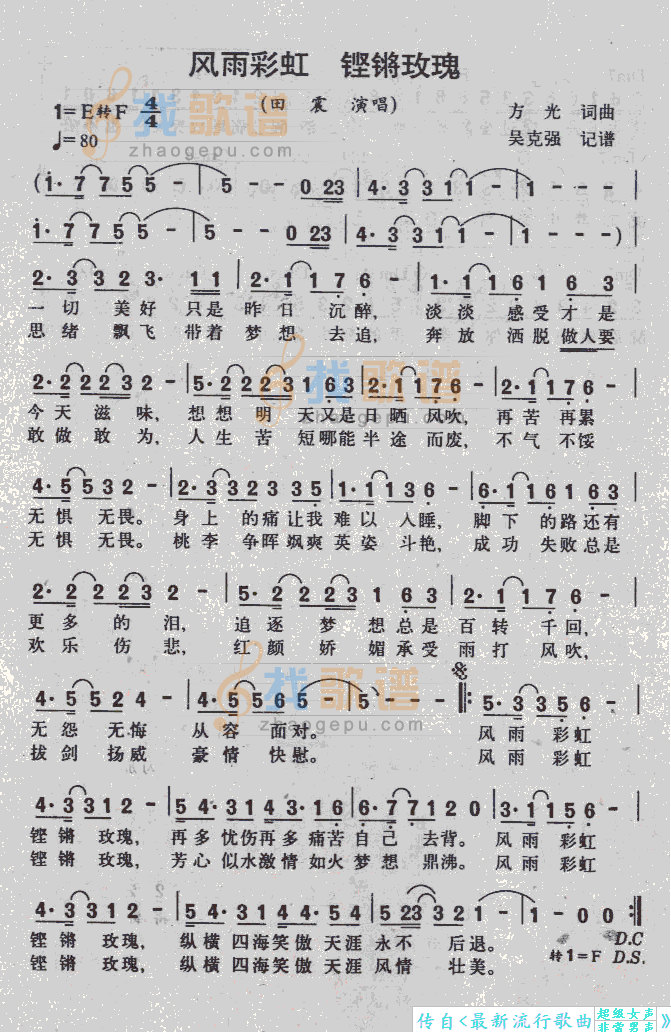 风雨彩虹 铿锵玫瑰
(田 震 演唱)
1=E转F 4/4
♩=80
方 光 词曲
吴克强 记谱
找歌谱
zhaogepu.com
(1· 7 7 5 5 - | 5 - - 0 23 | 4· 3 3 3 1 1 - | 1 - - - |
1· 7 7 5 5 - | 5 - - 0 23 | 4· 3 3 3 1 1 - | 1 - - - )
2· 3 3 2 3· 1 1 | 2· 1 1 7 6 - | 1· 1 1 6 1 6 3 |
一切 美好 只是 昨日 沉醉, 淡淡 感受 才是
思绪 飘飞 带着 梦想 去追, 奔放 洒脱 做人要
2· 2 2 2 3 2 - | 5· 2 2 2 3 1 6 3 | 2· 1 1 7 6 - | 2· 1 1 7 6 - |
今天 滋味, 想想 明天 又是 日晒 风吹, 再苦 再累
敢做 敢为, 人生 苦短 哪能 半途 而废, 不气 不馁
4· 5 5 5 3 2 - | 2· 3 3 2 3 3 5 | 1· 1 1 3 6 - | 6· 1 1 6 1 6 3 |
无惧 无畏。 身上 的痛 让我 难以 入睡, 脚下 的路 还有
无惧 无畏。 桃李 争晖 飒爽 英姿 斗艳, 成功 失败 总是
2· 2 2 2 2 3 2 - | 5· 2 2 2 3 6 3 | 2· 1 1 7 6 - |
更多 的泪, 追逐 梦想 总是 百转 千回,
欢乐 伤悲, 红颜 娇媚 承受 雨打 风吹,
4· 5 5 5 2 4 - | 4· 5 5 5 6 5 5 - | 5 - - - ‖: 5· 3 3 3 5 6 |
无怨 无悔 从容 面对。 风雨 彩虹
拔剑 扬威 豪情 快慰。 风雨 彩虹
4· 3 3 3 1 2 - | 5 4· 3 1 4 3· 1 6 | 6· 7 7 7 1 2 0 | 3· 1 1 1 5 6 |
铿锵 玫瑰, 再多忧伤再多痛苦自己 去背。 风雨 彩虹
铿锵 玫瑰, 芳心似水激情如火梦想 鼎沸。 风雨 彩虹
4· 3 3 3 1 2 - | 5 4· 3 1 4 4· 5 4 | 5 2 3 3 2 1 | 1 - 0 0 :‖
铿锵 玫瑰, 纵横 四海笑傲 天涯 永不 后退。 D.C
铿锵 玫瑰, 纵横 四海笑傲 天涯 风情 壮美。 转1=F D.S.
传自<最新流行歌曲 超级女声 非常男声 》